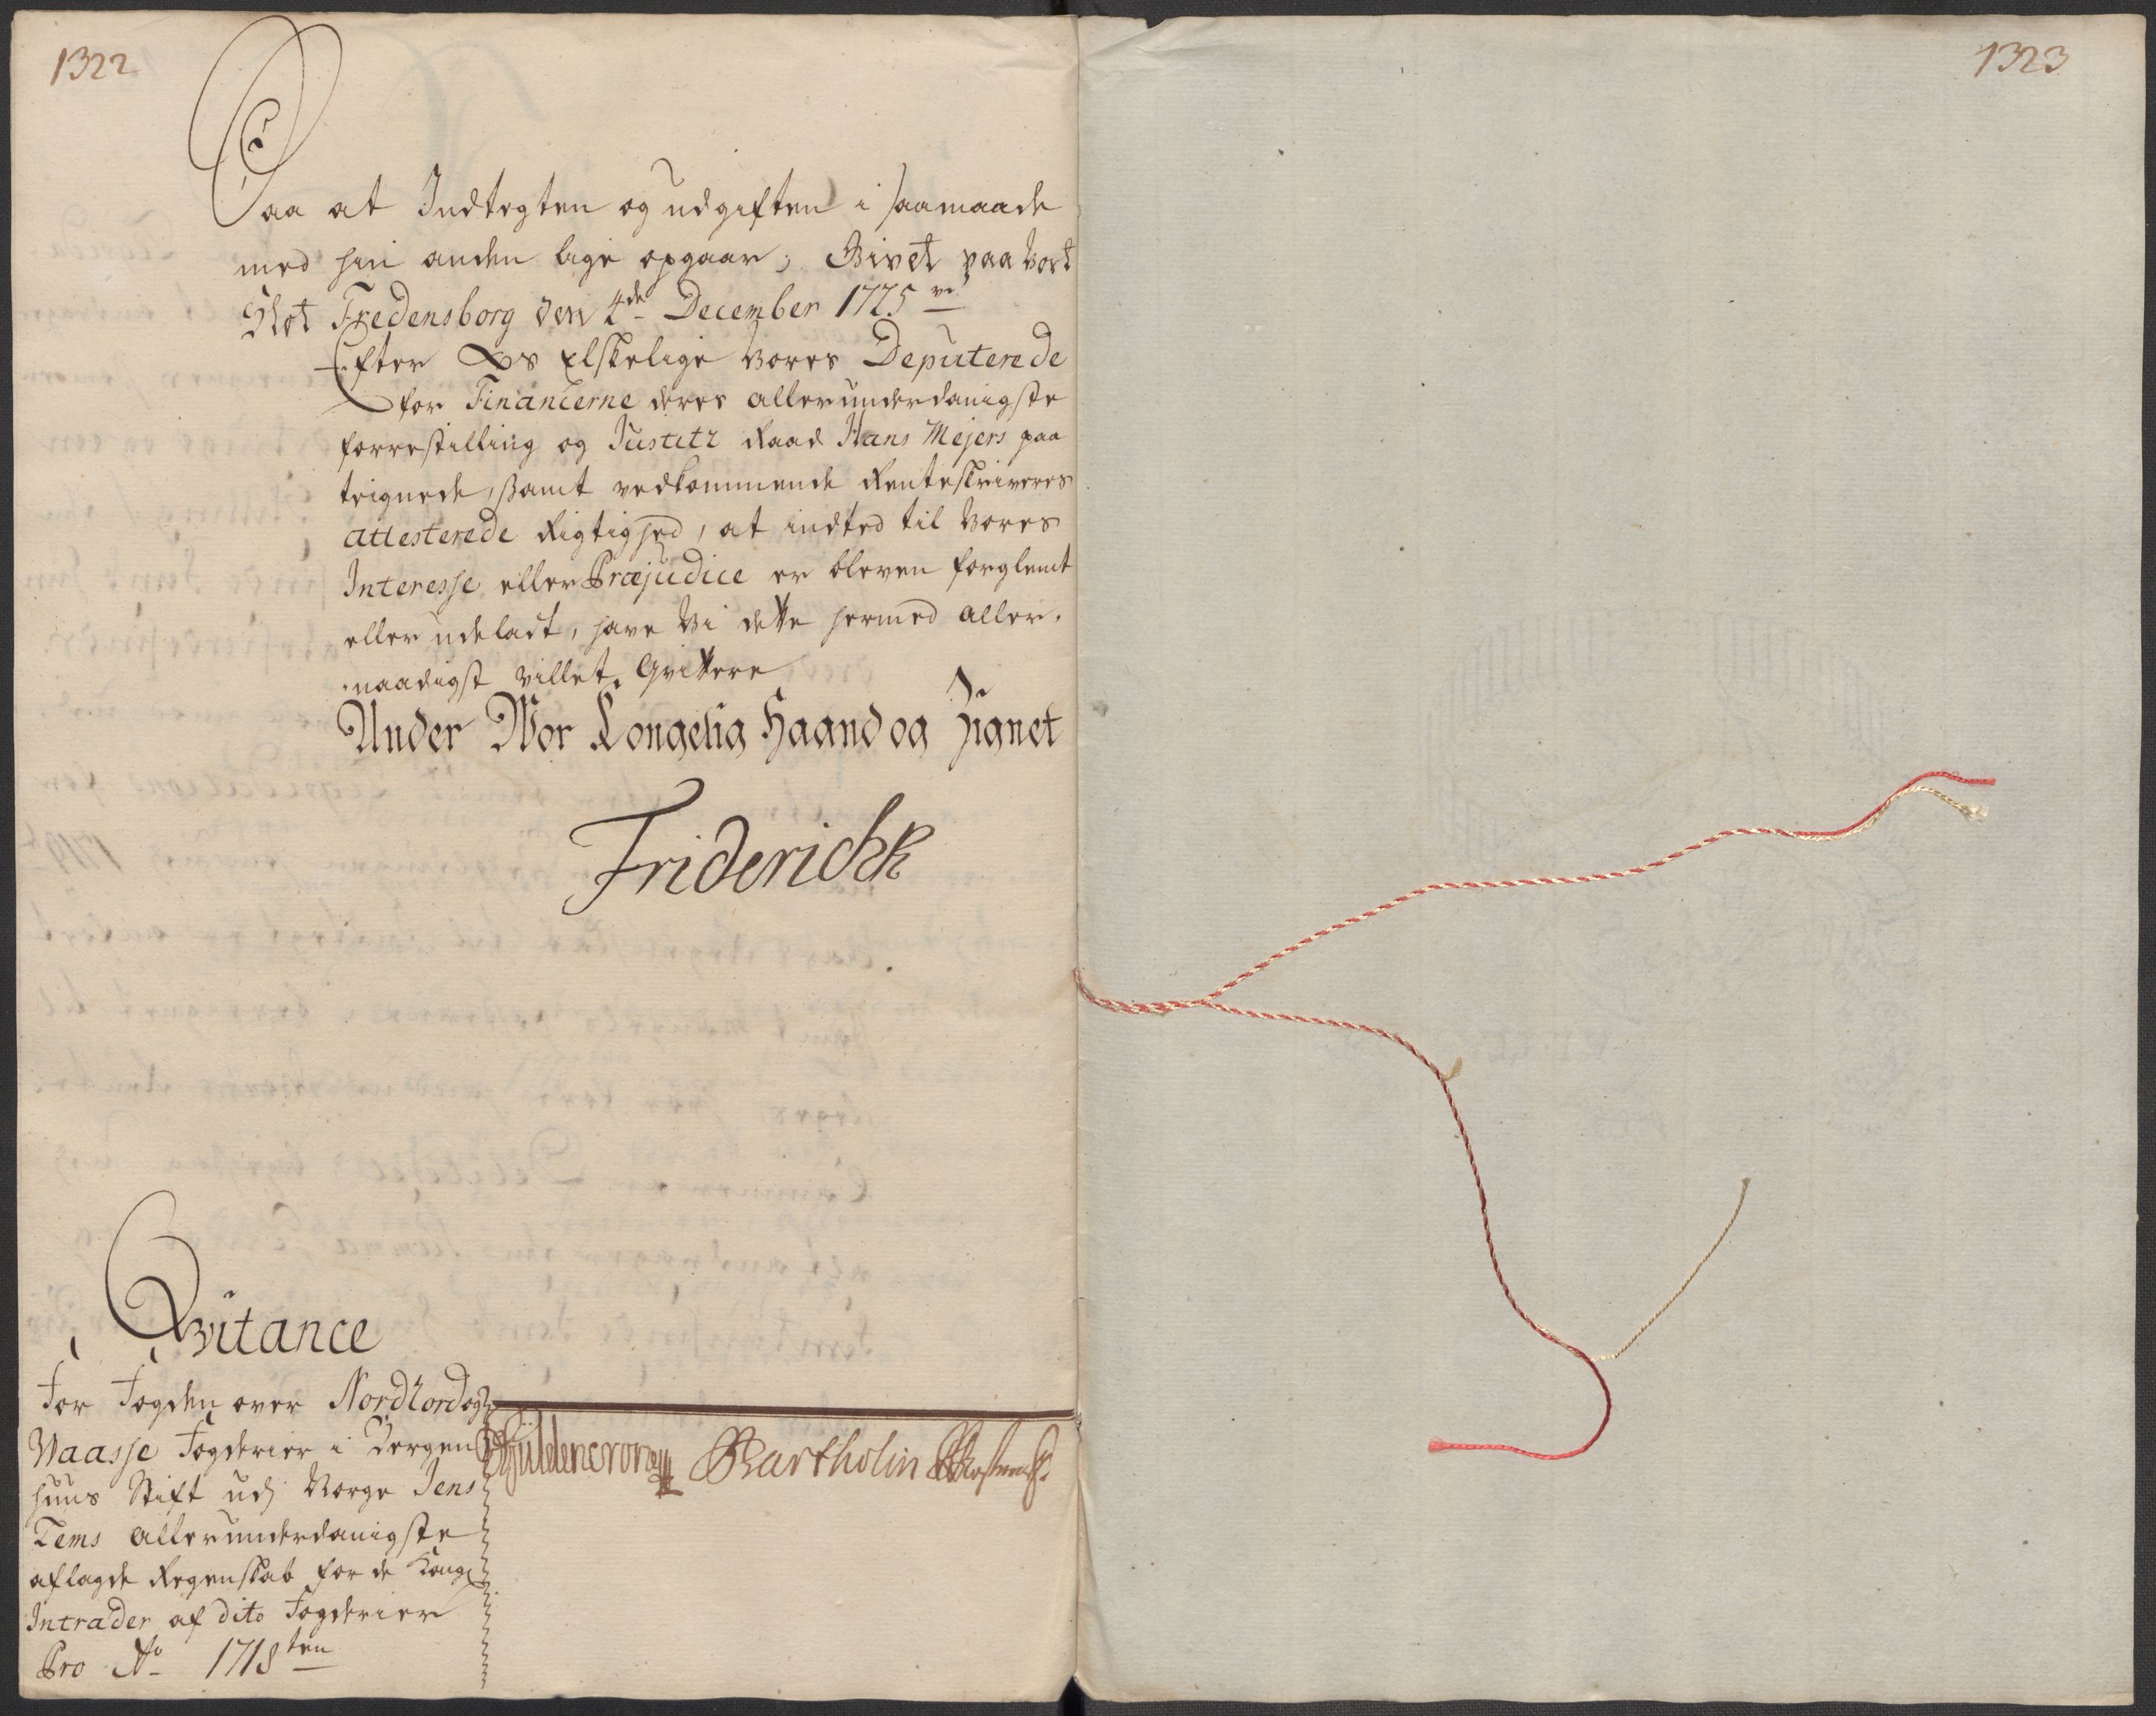 1322
Saa at Indtegten og udgiften i saamaade
med hin anden lige opgaar; Givet paa Vort
Slot Fredensborg den 4de December 1725ve
Efter Os Elskelige Vores Deputerede
for Financerne deres allerunderdanigste
forrestilling og Justitz Raad Hans Mejers paa
teignede, samt vedkommende Renteskriveres
attesterede Rigtighed, at indted til Vores
Interesse eller Præjudice er bleven forglemt
eller udeladt, have Vi dette hermed aller,
,naadigst villet Qvittere
Under Wor Kongelig Haand og Zignet
FriderichR
Qvitance
For Fogden over Nordhord og
Waasse Fogderier i Bergen
huus Stift udj Norge Jens
Tems allerunderdanigste
aflagde Regenskab for de Kongl
Intrader af dito Fogderier
Pro Ao 1718ten
Güldencrone Bartholin
1323